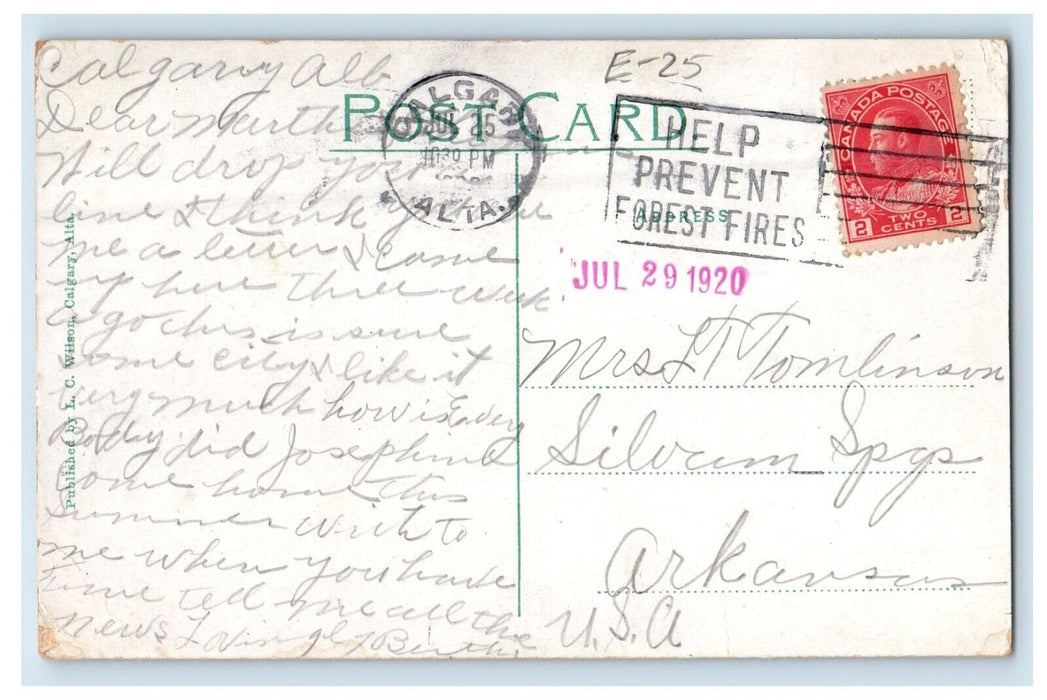 Calgary Alb
Dear Martha
Will drop you a
line & think you owe
me a letter & came
up here three week
ago this is sure
some city & like it
very much how is Every
Body did Josephine
come home this
Summer Writ to
me when you have
time tell me all the
news Lovingly Berth
Published by L. C. Wilson, Calgary, Alta.
POST CARD
CALGARY
JUL 25
1030 PM
ALTA.
E-25
HELP
PREVENT
FOREST FIRES
ADDRESS
CANADA POSTAGE
2 TWO CENTS 2
JUL 29 1920
Mrs L T Tomlinson
Siloum Spgs
Arkansas
U.S.A